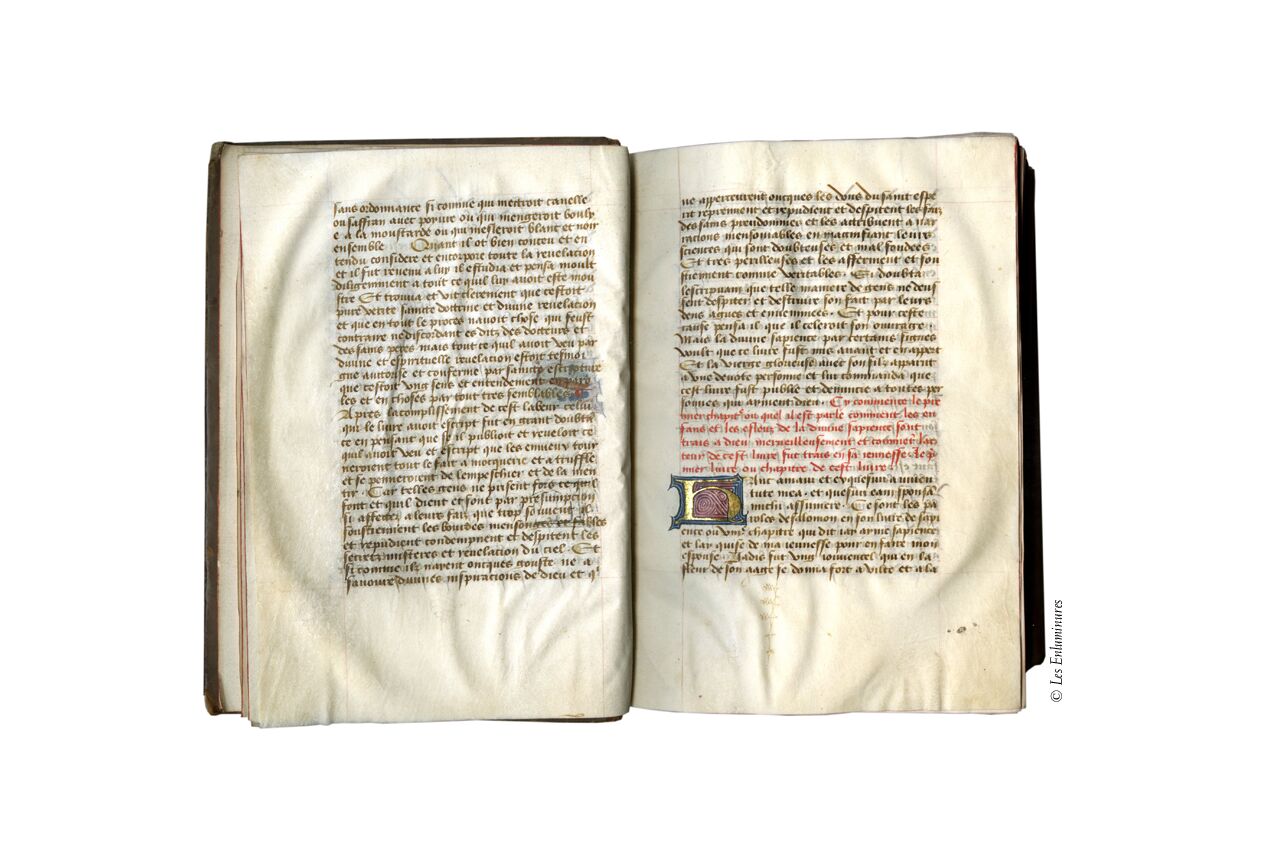 sans ordonnance si comme qui mettroit canelle
ou saffran avec poivre ou qui mengeroit bouly
e a la moustarde ou qui mesleroit blanc et noir
ensemble Quant il ot bien conceu et en
tendu considere et encorpore toute la revelation
et il fut revenu a luy il estudia et pensa moult
diligemment a tout ce quil luy avoit este mon
stre Et trouva et vit clerement que cestoit
pure verite sainte doctrine et divine revelation
et que en tout le proces navoit chose qui feust
contraire ne discordant es ditz des docteurs et
des sains peres mais tout ce quil avoit veu par
divine et espirituelle revelation estoit tesmoi
gne auctorise et conferme par sainte escripture
que cestoit ung sens et entendement en paro
les et en choses par tout tres semblables
Apres lacomplissement de cest labeur celui
qui le livre avoit escript fut en grant doubte
ce en pensant que se il publioit et reveloit ce
quil avoit veu et escript que les envieux tour
neroient tout le fait a mocquerie et a truffle
et se peineroient de lempeschier et de la men
tir Car telles gens ne prisent fors ce quil
font et quil dient et sont par presumpcion
si affectez a leurs faiz que trop souvent
soustiennent les bourdes mensonges et fables
et repudient condempnent et despitent les
secrez misteres et revelation du ciel Et
si comme ilz nayent oncques gouste ne a
savoure divines inspirations de dieu et q
ne apperceurent oncques les dons du saint espe
rit repreuvent et repudient et despitent les faiz
des sains preudommes et les attribuent a nar
racions mensonables en magnifiant leurs
sciences qui sont doubteuses et mal fondees
Et tres perilleuses et les afferment et sou
stiennent comme veritables Si doubta
lescripvain que telle maniere de gens ne deus
sent despiter et destruire son fait par leurs
dens agues et enveninees Et pour ceste
cause pensa il que il celeroit son ouvrage
Mais la divine sapience par certains signes
voult que ce livre fust mis avant et en appert
Et la vierge glorieuse avec son filz apparut
a une devote personne et lui commanda que
cest livre fust publie et denuncie a toutes per
sonnes qui ayment dieu Cy commence le pre
mier chapitre ou quel il est parle comment les en
fans et les esleuz de la divine sapience sont
trais a dieu merveilleusement et comment lac
teur de cest livre fut trais en sa iennesse le p
mier livre ou chapitre de cest livre
Hanc amavi et exquisivi a iuven
tute mea et quesivi eam sponsam
michi assumere Ce sont les pa
roles de salomon en son livre de sapi
ence ou chapitre qui dit iay ayme sapience
et lay quise de ma iennesse pour en faire mon
espouse Iadis fut ung iouvencel qui en la
fleur de son aage se donna fort a vilte et a la
© Les Enluminures